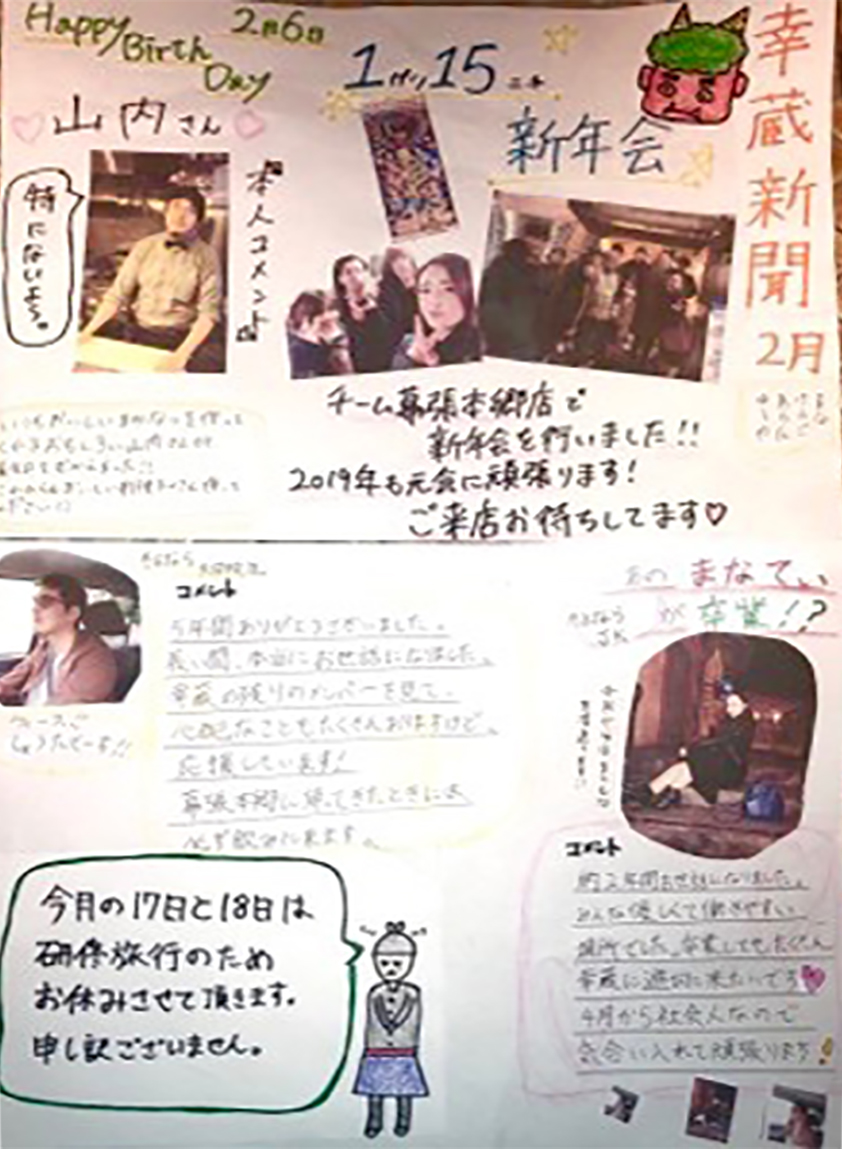 幸蔵新聞
2月
Happy
Birth
Day
2月6日
山内さん
特にないよ〜。
本人コメント
1月15
新年会
チーム幕張本郷店で
新年会を行いました!!
2019年も元会に頑張ります!
ご来店お待ちしてます♡
コメント
5年間ありがとうございました。
長い間、本当にお世話になりました。
幸蔵の残りのメンバーを見て、
心配なこともたくさんありますけど、
応援しています!
幕張本郷に帰ってきたときには
必ず飲みに来ます。
あのまなてぃ
が卒業!?
さよなら
JK
コメント
約2年間お世話になりました。
みんな優しくて働きやすい
場所でした。卒業してもたくさん
幸蔵に遊びに来たいです
4月から社会人なので
気合い入れて頑張ります!
今月の17日と18日は
研修旅行のため
お休みさせて頂きます。
申し訳ございません。